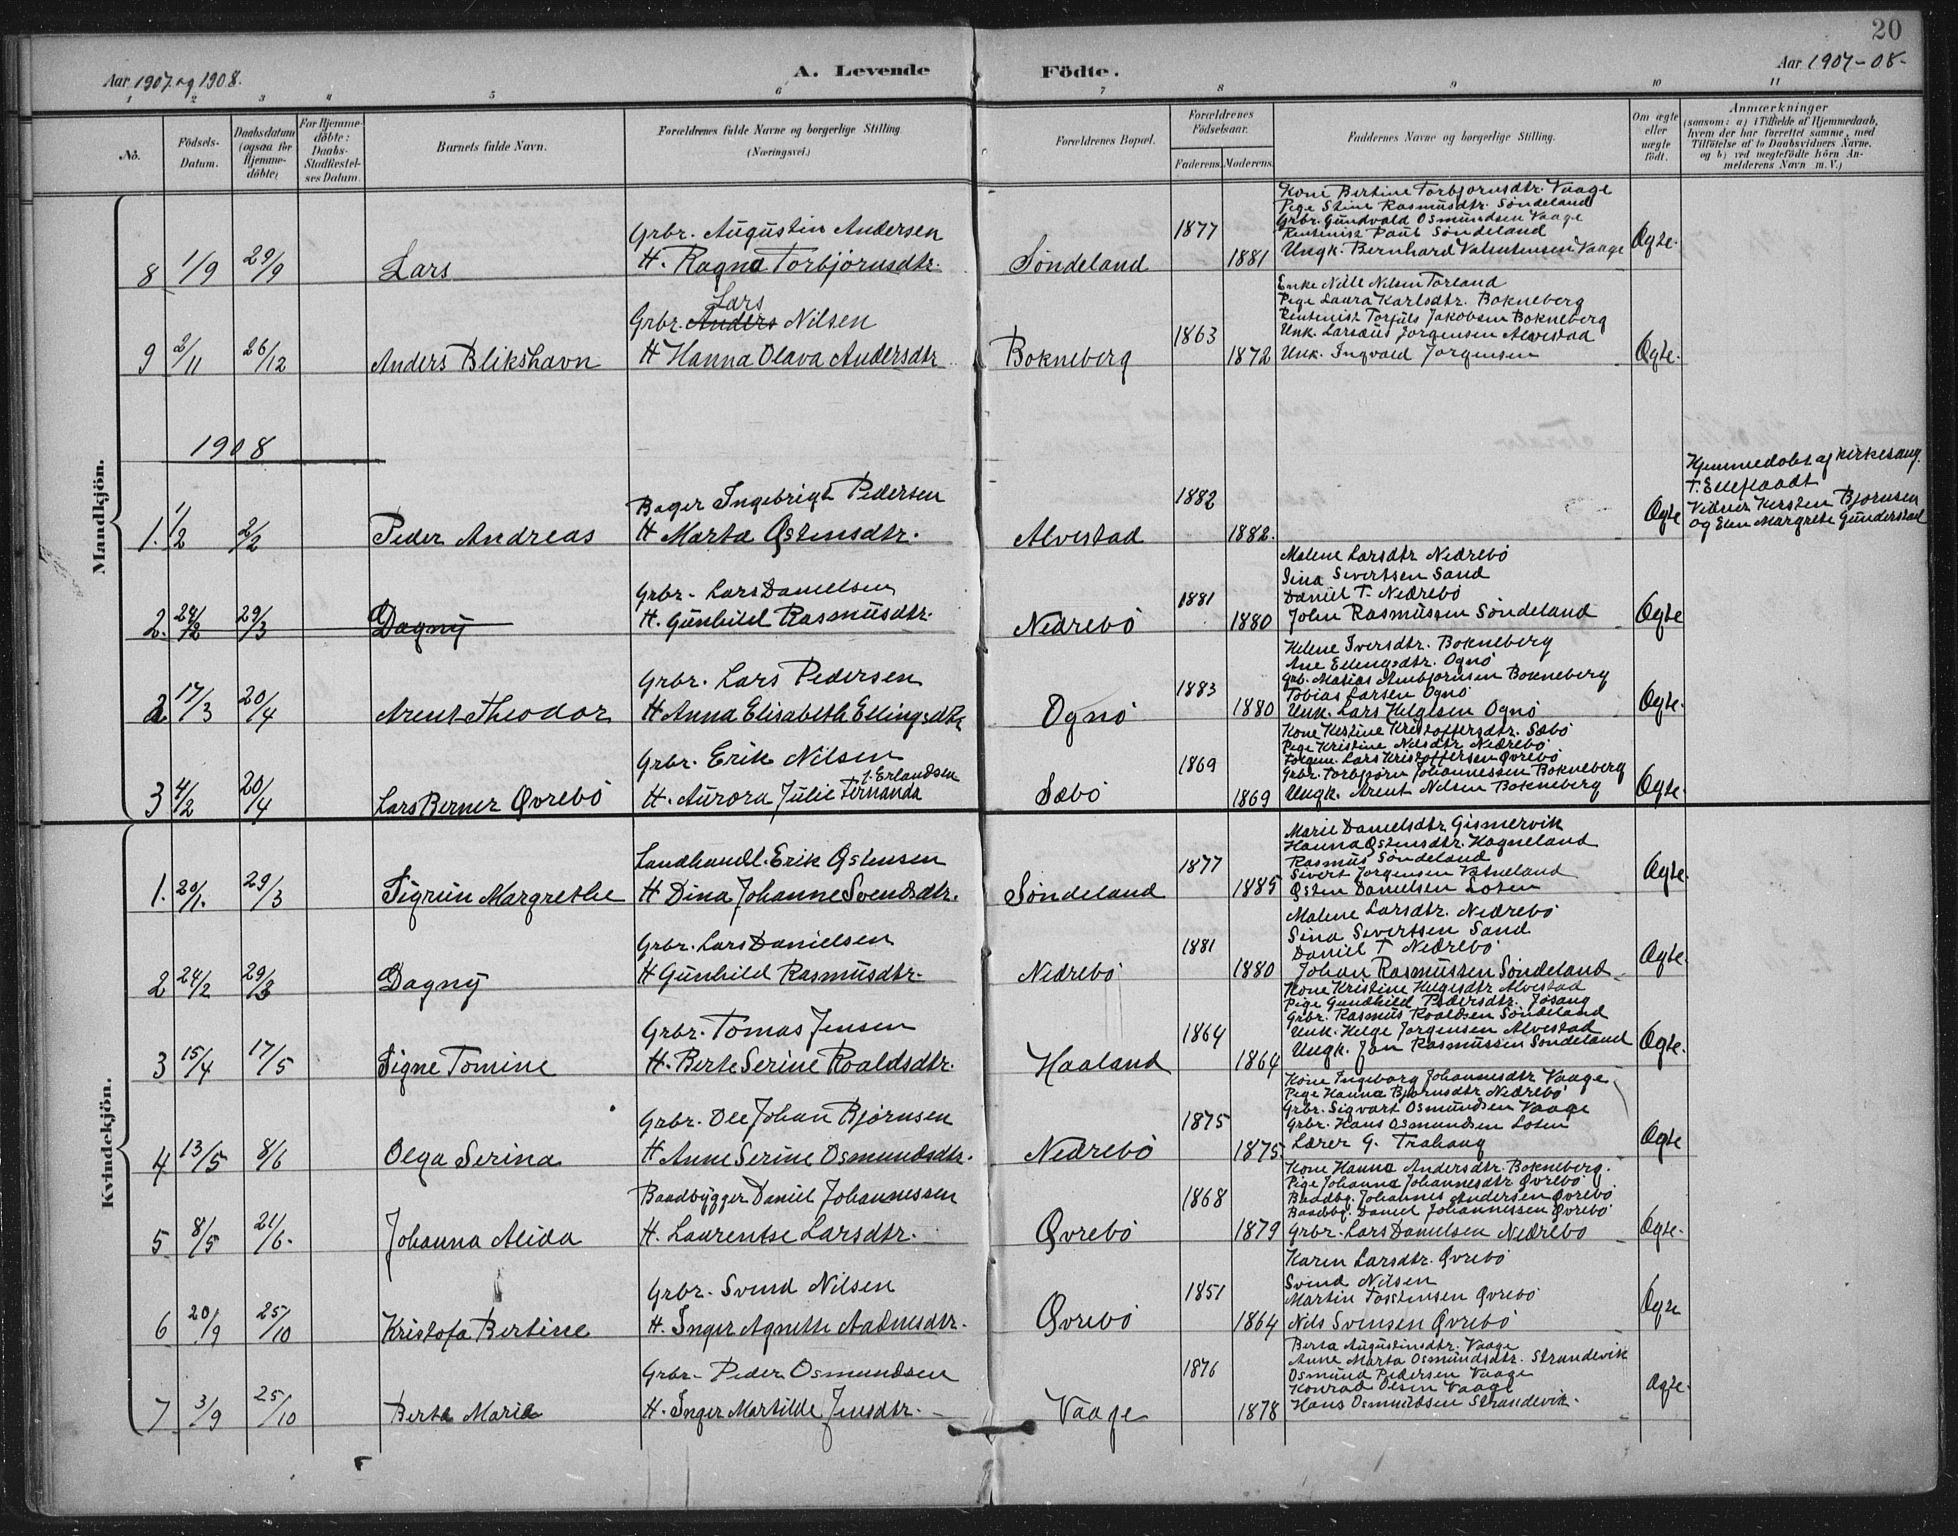 20
Aar 1907 og 1908.
A. Levende
Födte.
Aar 1907-08-
1 2 3 4 5 6 7 8 9 10 11
No.
Födsels-
Datum.
Daabsdatum
(ogsaa for
Hjemme-
döbte)
For Hjemme-
döbte:
Daabs-
Stadfæstel-
ses Datum.
Barnets fulde Navn.
Forældrenes fulde Navne og borgerlige Stilling
(Næringsvei.)
Forældrenes Bopæl.
Forældrenes
Födselsaar.
Faderens.
Moderens.
Faddernes Navne og borgerlige Stilling.
Om ægte
eller
uægte
födt.
Anmærkninger
(saasom: a) i Tilfælde af Hjemmedaab,
hvem der har forrettet samme, med
Tilföielse af to Daabsvidners Navne.
og b) ved uægtefödte börn An-
melderens Navn m. V.)
Mandkjön.
8 1/9 29/9 Lars
Grbr. Augustin Andersen
H. Ragna Torbjørnsdtr.
Søndeland
1877
1881
Kone Bertine Torbjørnsdtr. Vaage
Pige Stine Rasmusdtr. Søndeland
Grbr. Gundvald Osmundsen Vaage
Rentenist Paul Søndeland
Ungk. Bernhard Valentensen Vaage
Ægte.
9 2/11 26/12 Anders Blikshavn
Lars
Grbr. Anders Nilsen
H Hanna Olava Andersdtr
Bokneberg
1863
1872
Enke Nille Nilsen Torland
Pige Laura Karlsdtr. Bokneberg
Rentenist Torfuls Jakobsen Bokneberg
Unk. Larsæus Jørgensen Alvestad
Unk. Ingvald Jørgensen
Ægte.
1908
1. 1/2 2/2 Peder Andreas
Bager Ingebrigt Pedersen
H Marta Østensdtr.
Alvestad
1882
1882.
Ægte
Hjemmedøbt af Kirkesang.
T. Elleflaadt
Vidner Kersten Bjørnsen
og Elen Margrete Gunderstad
2. 24/2 29/3 Dagny
Grbr. Lars Danielsen
H. Gunhild Rasmusdtr.
Nedrebø
1881
1880
Malene Larsdtr Nedrebø
Sina Sivertsen Sand
Daniel T. Nedrebø
John Rasmussen Søndeland
Ægte
2. 17/3 20/4 Arent Theodor
Grbr. Lars Pedersen
H Anna Elisabeth Ellingsdtr
Ognø
1883
1880
Helene Iversdtr. Bokneberg
Ane Ellingsdtr. Ognø
Grb. Matias Ambjørnsen Bokneberg
Tobias Larsen Ognø
Unk. Lars Helgesen Ognø
Ægte.
3 4/2 20/4 Lars Berner Øvrebø
Grbr. Erik Nilsen
f. Erlandsen
H. Aurora Julie Fernanda
Sæbø
1869
1869
Kone Kestine Kristoffersdtr. Sæbø
Pige Kristine Nilsdtr Nedrebø
Lars Kristoffersen Øvrebø
Grbr. Torbjørn Johannessen Bokneberg
Ungk. Arent Nilsen Bokneberg
Ægte.
Kvindekjön.
1. 20/1. 29/3 Sigrun Margrethe
Landhandl. Erik Østensen
H Dina Johanne Svendsdtr.
Søndeland
1877
1885
Marie Danielsdtr Gismervik
Hanna Østensdtr. Hagneland
Rasmus Søndeland
Sivert Jørgensen Vatneland
Østen Danielsen Loten
Ægte.
2 24/2 29/3 Dagny
Grbr. Lars Danielsen
H Gunhild Rasmusdtr.
Nedrebø
1881
1880
Malene Larsdtr. Nedrebø
Sina Sivertsen Sand
Daniel T Nedrebø
Johan Rasmussen Søndeland
Ægte.
3 15/4 17/5 Signe Tomine
Grbr. Tomas Jensen
H. Berte Serine Roaldsdtr.
Haaland
1864
1864
Kone Kristine Helgesdtr Alvestad
Pige Gundhild Pedersdtr. Jøsang
Grbr. Rasmus Roaldsen Søndeland
Unk. Helge Jørgensen Alvestad
Ungk. Jon Rasmussen Søndeland
Ægte.
4 13/5 8/6 Olga Serina
Grbr. Ole Johan Bjørnsen
H Anne Serine Osmundsdtr.
Nedrebø
1875
1875
Kone Ingeborg Johannesdtr Vaage
Pige Hanna Bjørnsdtr Nedrebø
Grbr. Sigvart Osmundsen Vaage
Grbr. Hans Osmundsen Loten
Lærer G. Trahaug
Ægte
5 8/5 21/6. Johanna Alida
Baadbygger Daniel Johannessen
H. Laurentse Larsdtr.
Øvrebø
1868
1879
Kone Hanna Andersdtr. Bokneberg.
Pige Johanna Johannesdtr Øvrebø
Baadbg. Johannes Andersen Øvrebø
Baadbg. Daniel Johannessen Øvrebø
Grbr. Lars Danielsen Nedrebø
Ægte.
6 20/9 25/10 Kristofa Bertine
Grbr. Svend Nilsen
H. Inger Agnethe Aadnesdtr.
Øvrebø
1851
1864
Karen Larsdtr. Øvrebø
Svend Nilsen
Martin Tostensen Øvrebø
Nils Svensen Øvrebø
Ægte
7 3/9 25/10 Berta Marie
Grbr. Peder Osmundsen
H. Inger Martilde Jensdtr.
Vaage
1876
1878
Berta Augustinsdtr. Vaage
Anne Marta Osmundsdtr. Strandevik
Osmund Pedersen Vaage
Konrad Olsen Vaage
Hans Osmundsen Strandevik.
Ægte.